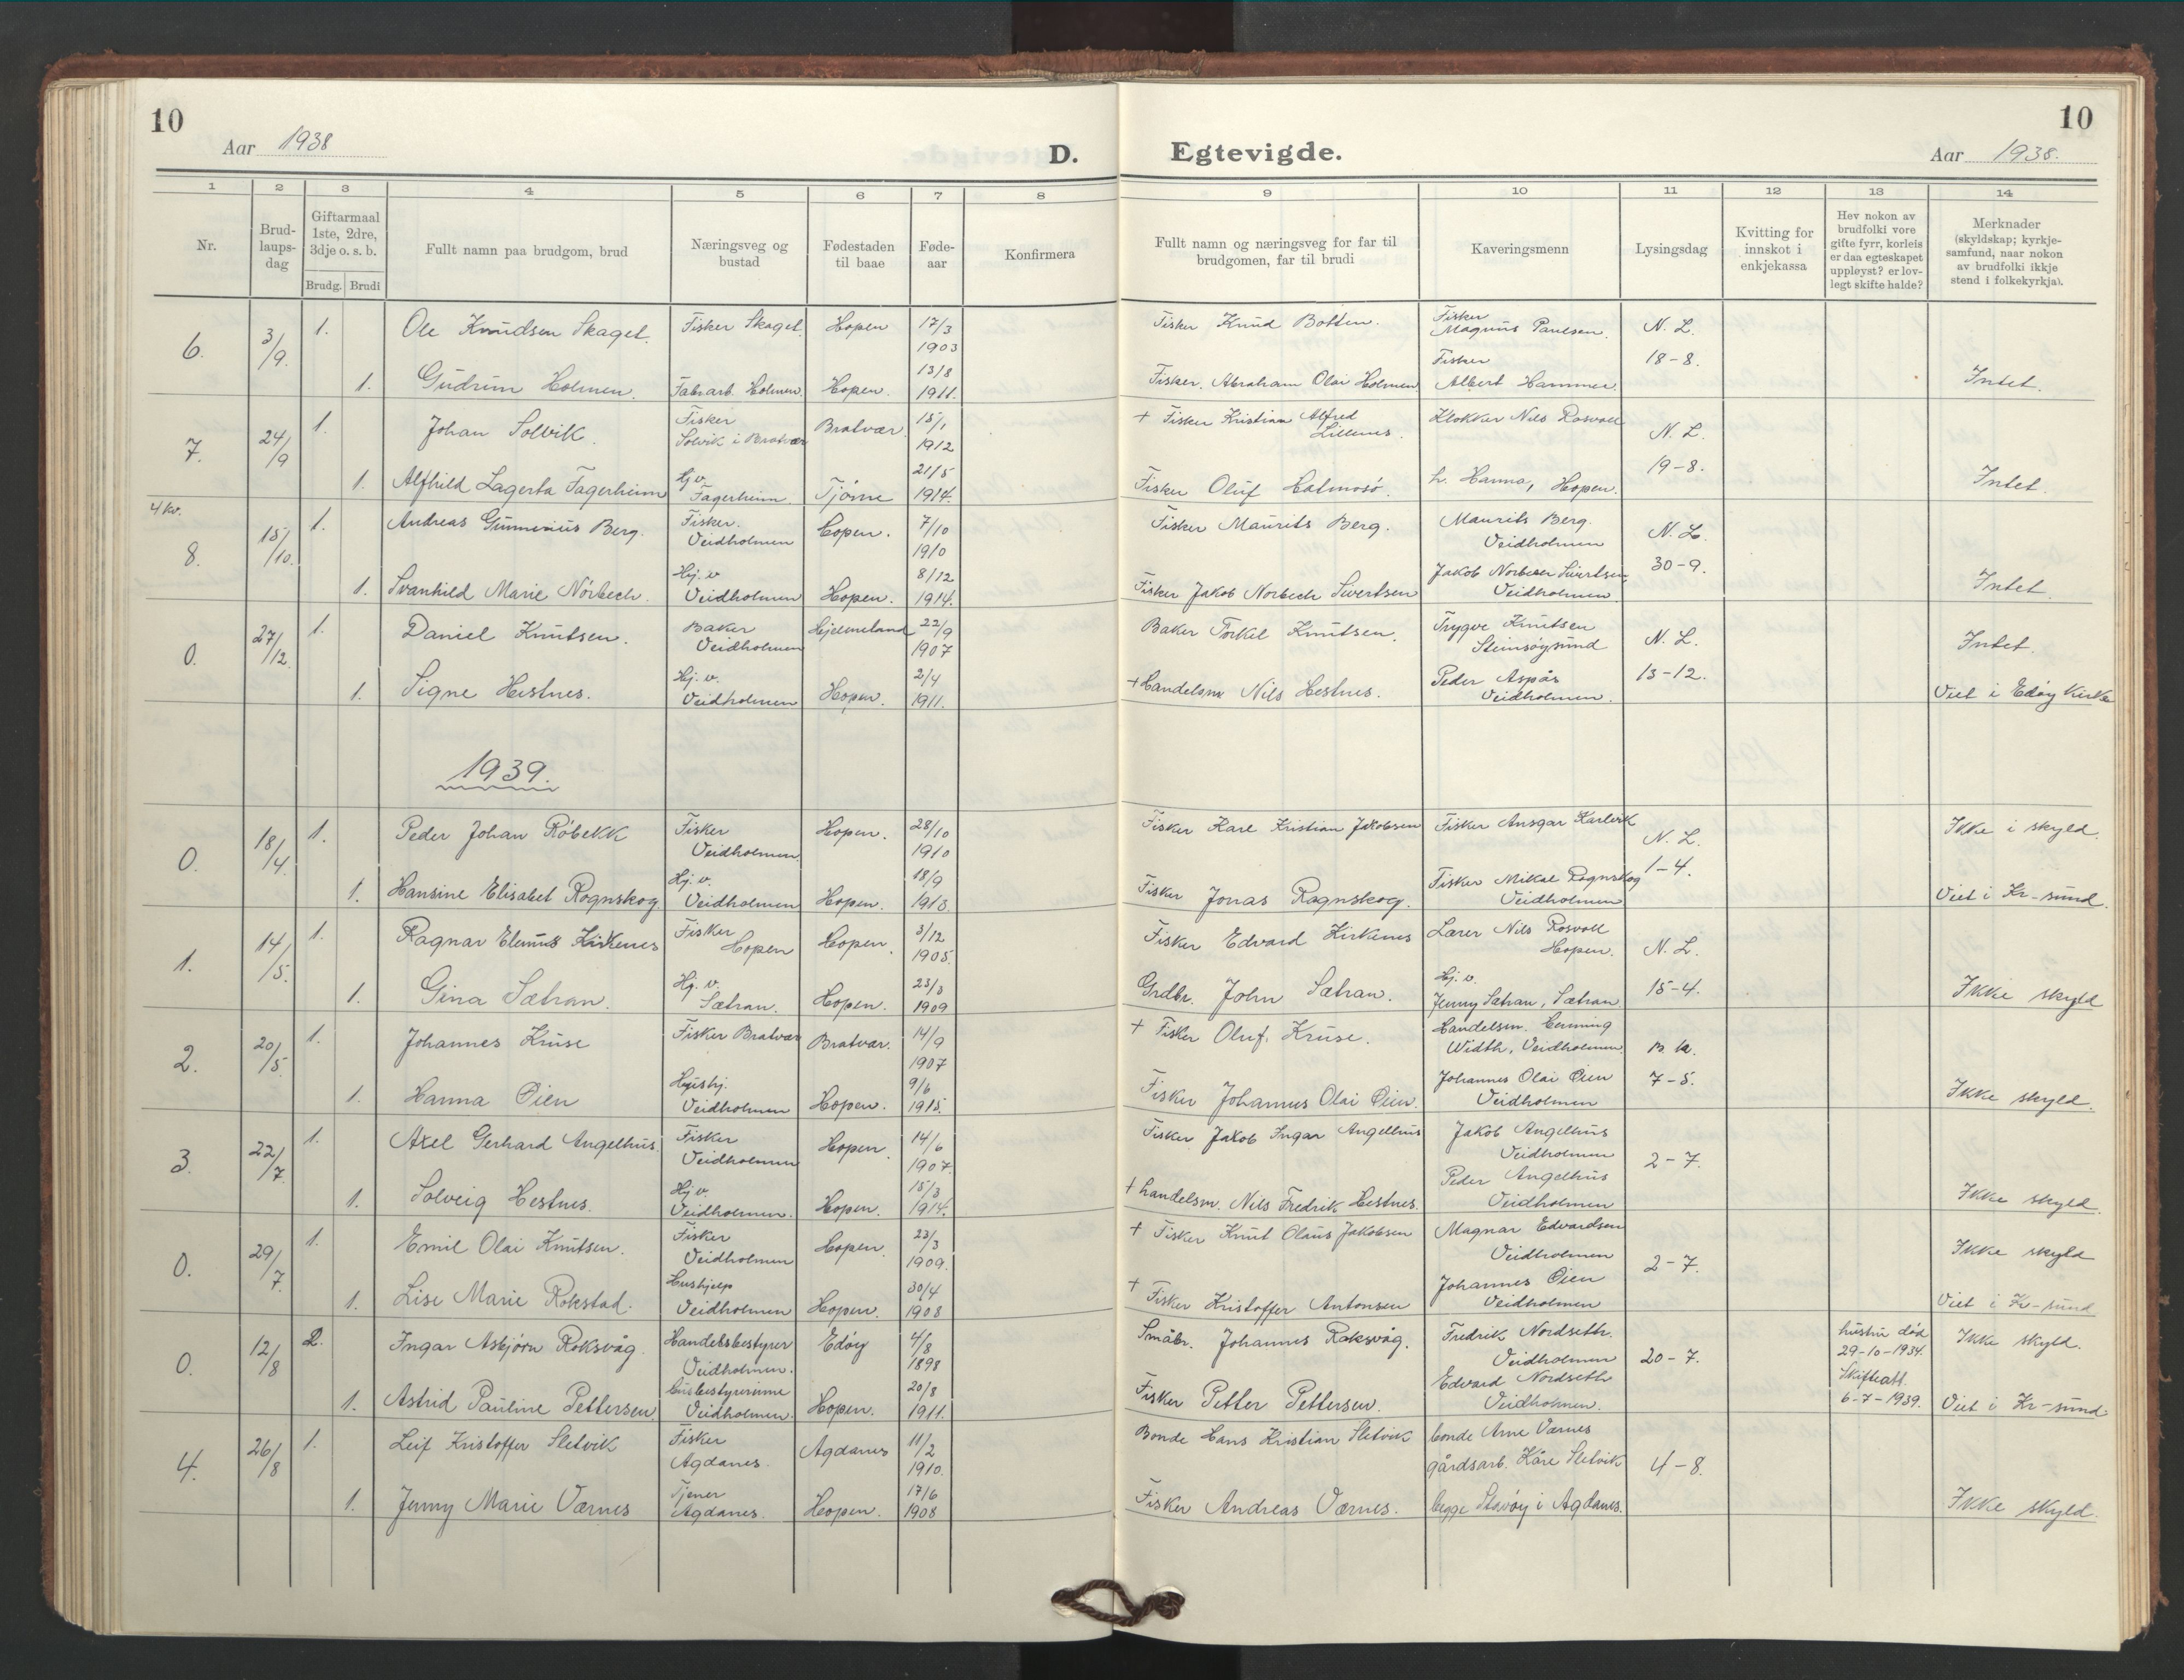 10
10
Aar 1938
D. Egtevigde.
Aar 1938.
1 2 3 4 5 6 7 8 9 10 11 12 13 14
Nr.
Brud-
laups-
dag
Giftarmaal
1ste, 2dre,
3dje o. s. b.
Brudg. Brudi
Fullt namn paa brudgom, brud
Næringsveg og
bustad
Fødestaden
til baae
Føde-
aar
Konfirmera
Fullt namn og næringsveg for far til
brudgomen, far til brudi
Kaveringsmenn
Lysingsdag
Kvitting for
innskot i
enkjekassa
Hev nokon av
brudfolki vore
gifte fyrr, korleis
er daa egteskapet
uppløyst? er lov-
legt skifte halde?
Merknader
(skyldskap; kyrkje-
samfund, naar nokon
av brudfolki ikkje
stend i folkekyrkja).
6. 3/9 1. Ole Knudsen Skaget. Fisker Skaget. Hopen 17/3 1903 Fisker Knud Botten. Fisker Magnus Paulsen. N. L. 18-8.
1. Gudrun Holmen. Fabr.arb. Holmen. Hopen. 13/8 1911. Fisker. Abraham Olai Holmen Fisker Albert Hammer Intet.
7. 24/9 1. Johan Solvik. Fisker Solvik i Bratvær Bratvær. 15/1 1912 + Fisker Kristian Alfred Lillenes. Klokker Nils Rosvoll N. L. 19-8.
1. Alfhild Lagerta Fagerheim Hj v. Fagerheim Tjøme 21/5 1914. Fisker Oluf Hatmosø. L. Hanna, Hopen. Intet.
4 kv.
8. 15/10. 1. Andreas Gunnerius Berg. Fisker. Veidholmen Hopen. 7/10 1910 Fisker Maurits Berg. Maurits Berg. Veidholmen N. L. 30-9.
1. Svanhild Marie Nørbech. Hj. v Veidholmen Hopen. 8/12 1914. Fisker Jakob Norbech Sivertsen Jakob Norbech Sivertsen Veidholmen. Intet.
0. 27/12. 1. Daniel Knutsen. Baker Veidholmen Hjelmeland 22/9 1907 Baker Torkel Knutsen. Trygve Knutsen Steinsøysund N. L. 13-12. Intet.
1. Signe Hestnes. Hj. v. Veidholmen Hopen. 2/4 1911. + Handelsm Nils Hestnes. Peder Aspås Veidholmen. Viet i Edøy Kirke
1939.
0. 18/4. 1. Peder Johan Røbekk Fisker Veidholmen. Hopen. 28/10 1910 Fisker Karl Kristian Jakobsen Fisker Ansgar Karlvik N. L. 1-4. Ikke i skyld.
1. Hansine Elisabet Rognskog. Hj. v. Veidholmen Hopen. 18/9 1913. Fisker Jonas Rognskog. Fisker Mikal Rognskog Veidholmen Viet i Kr-sund.
1. 14/5. 1. Ragnar Elenus Kirkenes Fisker Hopen Hopen. 3/12 1905. Fisker Edvard Kirkenes Lærer Nils Rosvoll Hopen. N. L. 15-4.
1. Gina Sætran. Hj. v. Sætran. Hopen. 23/3 1909 Grdbr. John Sætran. Hj. v. Jenny Sætran, Sætran. Ikke skyld
2. 20/5. 1. Johannes Kruse Fisker Bratvær Bratvær. 14/9 1907 + Fisker Oluf. Kruse. Handelsm. Henning Width, Veidholmen. 7-5.
1. Hanna Øien Veidholmen Hopen. 9/6 1915. Fisker Johannes Olai Øien. Johannes Olai Øien Veidholmen Ikke skyld.
3. 22/7. 1. Axel Gerhard Angelhus. Fisker Veidholmen Hopen. 14/6 1907. Fisker Jakob Ingar Angelhus Jakob Angelhus Veidholmen 2-7.
1. Solveig Hestnes. Hj v. Veidholmen. Hopen. 15/3 1914. + handelsm. Nils Fredrik Hestnes. Peder Angelhus Veidholmen Ikke skyld.
0. 29/7. 1. Emil Olai Knutsen. Fisker Veidholmen Hopen. 23/3 1909. + Fisker Knut Olaus Jakobsen Magnar Edvardsen Veidholmen 2-7. Ikke skyld
1. Lise Marie Rokstad. Hushjelp Veidholmen Hopen. 30/4 1908 + Fisker Kristoffer Antonsen Johannes Øien Veidholmen Viet i Kr-sund
0. 12/8 2. Ingar Asbjørn Roksvåg. Handelsbestyrer Veidholmen. Edøy 4/8 1898 Småbr. Johannes Roksvåg. Fredrik Nordseth. Veidholmen 20-7. hustru død 29-10-1934. Ikke skyld.
1. Astrid Pauline Pettersen. husbestyrerinne Veidholmen. Hopen. 20/8 1911. Fisker Petter Pettersen. Edvard Nordseth Veidholmen. Skifteatt. 6-7-1939. Viet i Kr-sund.
4. 26/8 1. Leif Kristoffer Sletvik Fisker Agdanes. Agdanes 11/2 1910. Bonde Hans Kristian Sletvik bonde Arne Værnes gårdsarb. Kåre Sletvik 4-8.
1. Jenny Marie Værnes Tjener Agdanes. Hopen. 17/6 1908 Fisker Andreas Værnes. begge Stavøy i Agdanes. Ikke skyld.